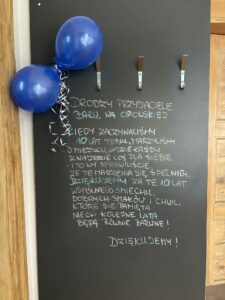 DRODZY PRZYJACIELE
BARU NA OPOLSKIEJ
KIEDY ZACZYNALIŚMY
10 LAT TEMU, MARZYLIŚMY
O MIEJSCU, GDZIE KAŻDY
ZNAJDZIE COŚ DLA SIEBIE
- I TO WY SPRAWILIŚCIE,
ŻE TE MARZENIA SIĘ SPEŁNIŁY.
DZIĘKUJEMY ZA TE 10 LAT
WSPÓLNEGO ŚMIECHU,
DOBRYCH SMAKÓW I CHWIL,
KTÓRE SIĘ PAMIĘTA
NIECH KOLEJNE LATA
BĘDĄ RÓWNIE BARWNE!
DZIĘKUJEMY!